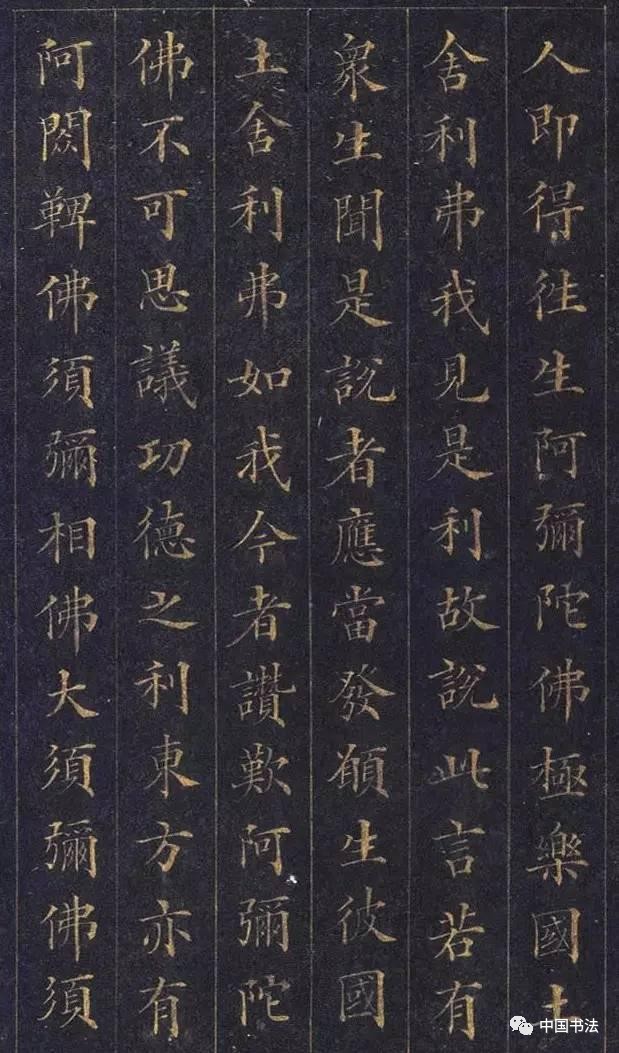 人即得往生阿彌陀佛極樂國土
舍利弗我見是利故說此言若有
衆生聞是說者應當發願生彼國
土舍利弗如我今者讚歎阿彌陀
佛不可思議功德之利東方亦有
阿閦鞞佛須彌相佛大須彌佛須
中国书法